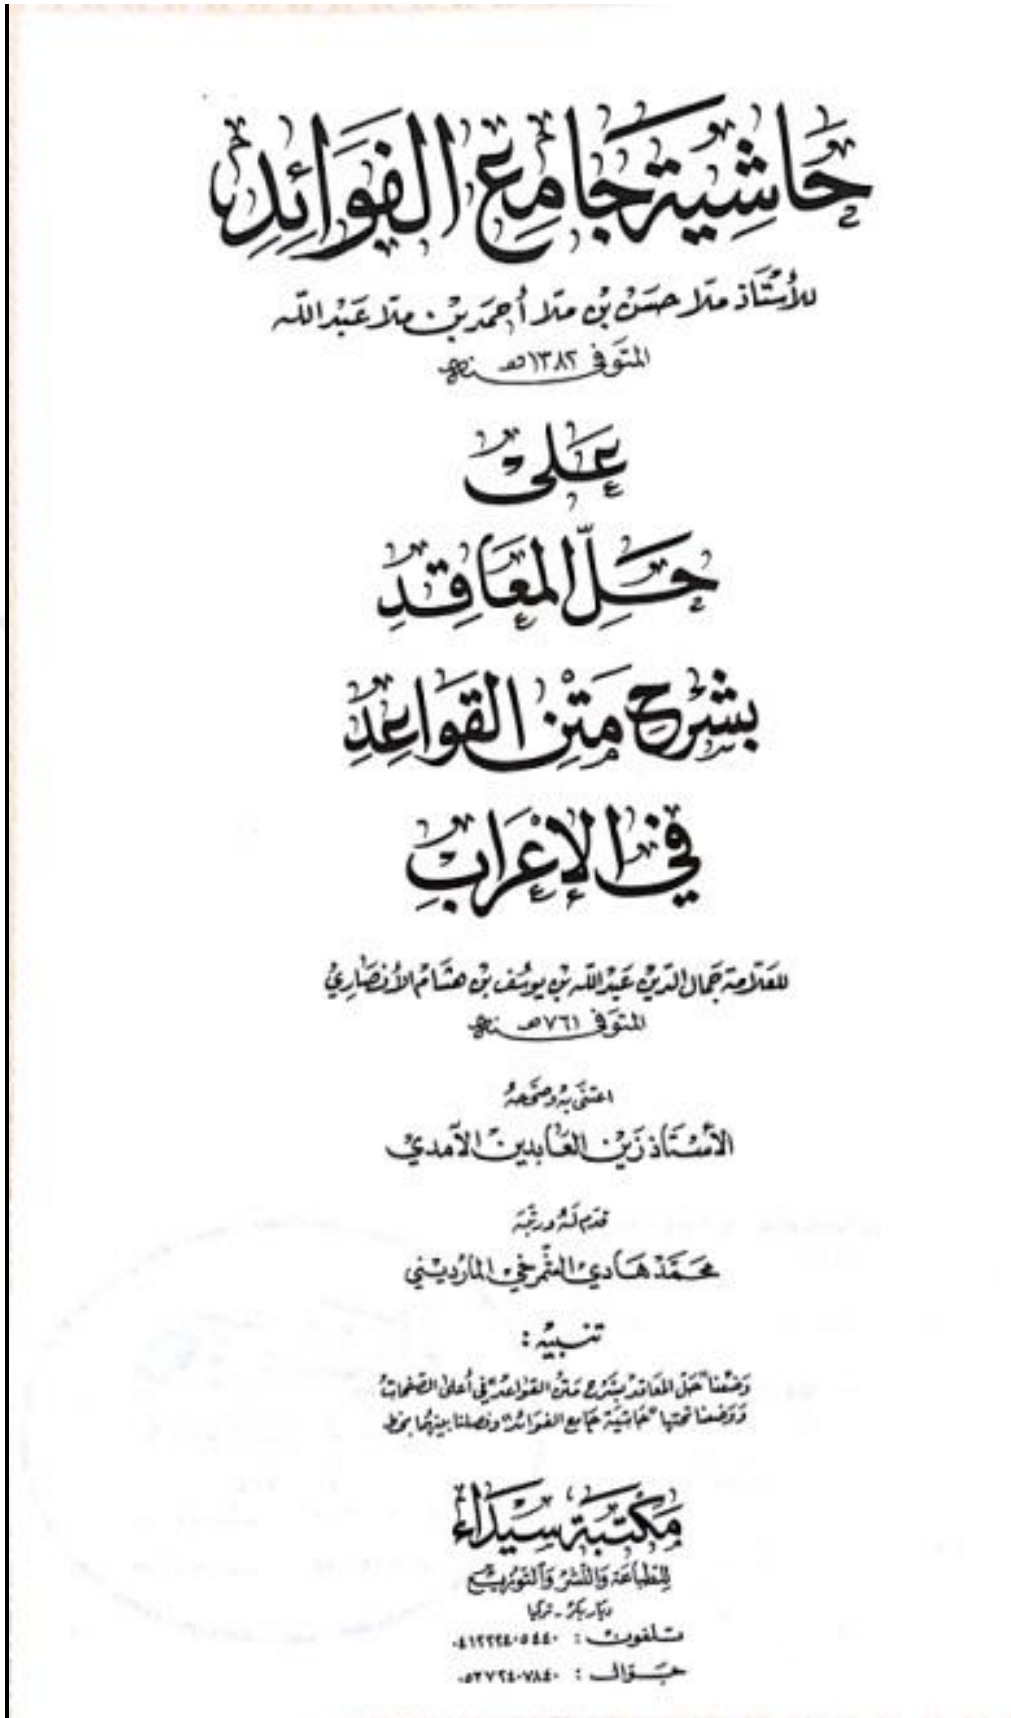 حَاشِيَة جَامِع الفَوَائِدِ
للأُسْتَاذ مُلا حسَن بْن مُلا أحمَد بْن مُلا عَبْد اللّه
المتوَفى سنة ١٣٨٢ هـ
عَلىٰ
حَلِّ المعَاقِدِ
بشَرْحِ مَتْنِ القَوَاعِدِ
في الإعْرَابِ
للعَلّامة جَمال الدّين عَبْد اللّه بْن يوسُف بْن هشَام الأنصَاريْ
المتوَفى سنة ٧٦١ هـ
اعتنَى به وصَحّحهُ
الأسْتَاذ زَيْن العَابدين الآمدي
قدّم لَهُ ورتّبَهُ
محَمَّد هَادي الشّمرخي المارديني
تنبيه :
وَضَعْنا "حَلّ المعَاقد بشَرْح مَتْن القوَاعد" في أعلىٰ الصّفحات
وَوَضعنا تحتهَا "حَاشيَة جَامع الفوَائد" وفصلنا بينهُما بخط
مَكتَبَة سَيْدَاء
للطبَاعَة وَالنّشر وَالتّوزيْع
ديَار بكر - تركيا
تلفون : ٠٤١٢٢٢٤٠٥٤٤٠
جَوّال : ٠٥٣٧٢٤٠٧٨٤٠